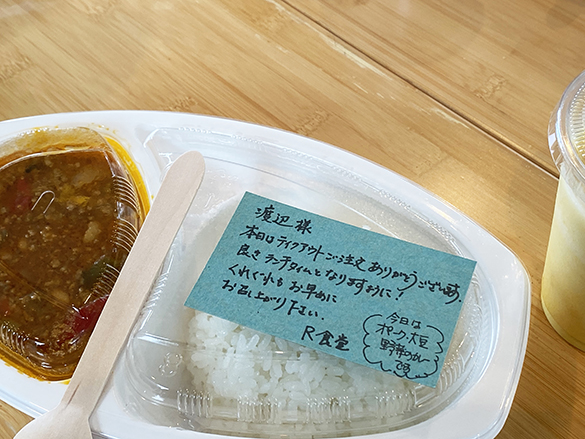 渡辺様
本日はテイクアウトご注文ありがとうございます。
良きランチタイムとなりますように!
くれぐれもお早めに
お召し上がり下さい。
R食堂
今日は
ポーク・大豆
野菜のカレー
です